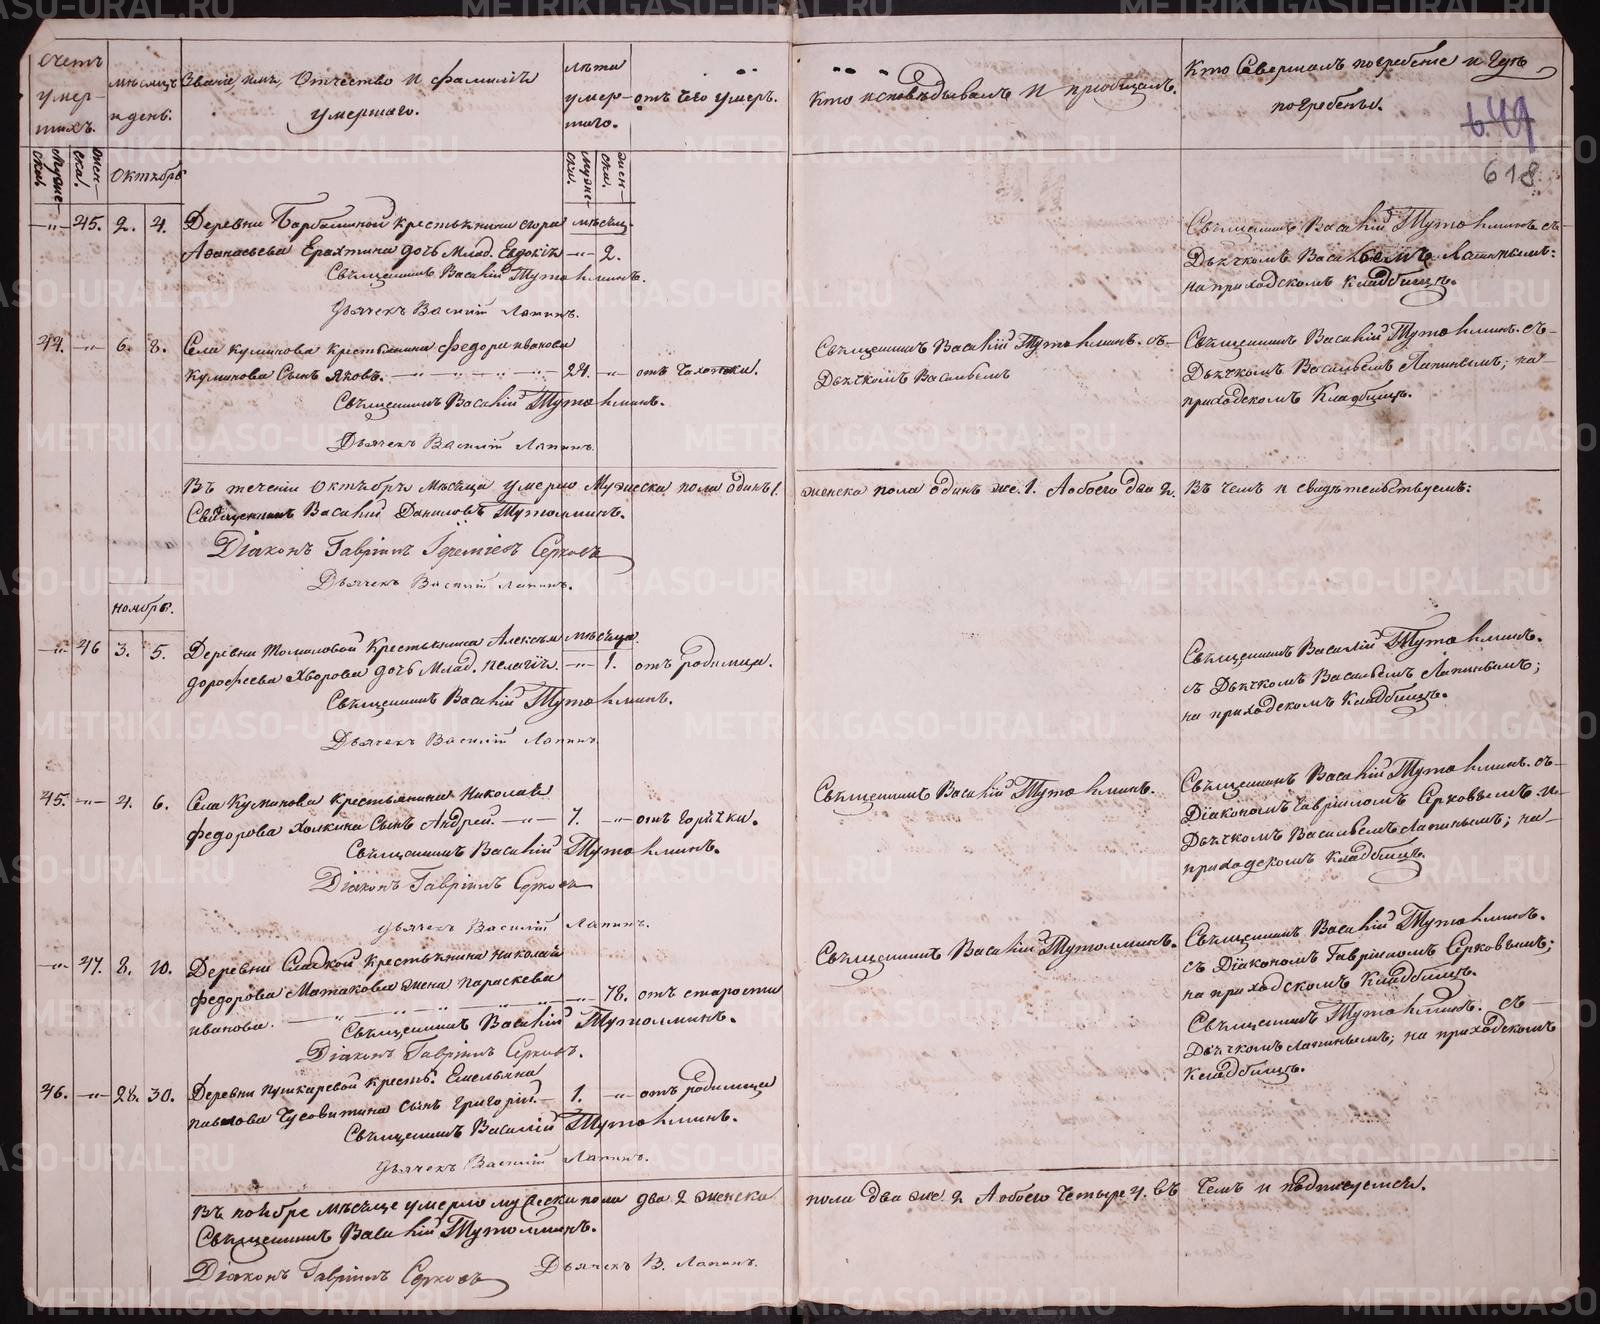 Счетъ умер- тихъ.
мѣсяцъ и день.
Званіе, имя, Отчество и фамилія умершаго.
лѣта умер- шаго.
отъ чего умеръ.
Кто исповѣдывалъ и приобщалъ.
Кто Совершалъ погребеніе и гдѣ погребены.
649
618
Муже- скій
жен- ска.
Октябрь
муже- ски.
жен- ска.
45. 2. 4. Деревни крестьянина мѣсяц.
Аѳанасьева дочь Млад. Евдокія 2.
Священникъ Василій Тутолминъ.
Дьячекъ Василій Лапинъ.
Священникъ Василій Тутолминъ съ
Дьячкомъ Васильемъ Лапинымъ:
на приходскомъ Кладбищѣ.
44. 6. 8. Села куминова крестьянина Федора иванова
куминова Сынъ Яковъ. 24. отъ чахотки.
Священникъ Василій Тутолминъ.
Дьячекъ Василій Лапинъ.
Священникъ Василій Тутолминъ. съ
Дьячкомъ Васильемъ
Священникъ Василій Тутолминъ. съ
Дьячкомъ Васильемъ Лапинымъ; на
приходскомъ Кладбищѣ.
Въ теченіи Октября Мѣсяца умерло Мужеска пола одинъ 1. женска пола одинъ же. 1. А обоего два 2. Въ чемъ и свидѣтельствуемъ:
Священникъ Василій Даниловъ Тутолминъ.
Діаконъ Гавріилъ Іереміевъ Серковъ
Дьячекъ Василій Лапинъ.
ноябрь.
46 3. 5. Деревни Томиловой Крестьянина Алексѣя мѣсяца.
дорофеева Хворова дочь Млад. пелагія. 1. отъ родимца.
Священникъ Василій Тутолминъ.
Дьячекъ Василій Лапинъ.
Священникъ Василій Тутолминъ.
съ Дьячкомъ Васильемъ Лапинымъ;
на приходскомъ Кладбищѣ.
45. 4. 6. Села Куминова крестьянина Николая
федорова Сынъ Андрей. 7. отъ горячки.
Священникъ Василій Тутолминъ.
Діаконъ Гавріилъ Серковъ
Дьячекъ Василій Лапинъ.
Священникъ Василій Тутолминъ.
Священникъ Василій Тутолминъ. съ
Діакономъ Гавріиломъ Серковымъ и
Дьячкомъ Васильемъ Лапинымъ; на
приходскомъ Кладбищѣ.
47. 8. 10. Деревни Сладкой крестьянина николая
федорова Матакова жена параскева
иванова. 78. отъ старости
Священникъ Василій Тутолминъ.
Діаконъ Гавріилъ Серковъ.
Священникъ Василій Тутолминъ.
Священникъ Василій Тутолминъ.
съ Діакономъ Гавріиломъ Серковымъ;
на приходскомъ Кладбищѣ.
46. 28. 30. Деревни пушкаревой крестьян. Емельяна
павлова Чусовитина сынъ григорій. 1. отъ родимца
Священникъ Василій Тутолминъ.
Дьячекъ Василій Лапинъ.
Священникъ Тутолминъ. съ
Дьячкомъ Лапинымъ; на приходскомъ
Кладбищѣ.
Въ ноябре мѣсяце умерло мужеска пола два 2 женска пола два же 2 А обоего четыре 4. въ чемъ и подписуемся.
Священникъ Василій Тутолминъ.
Діаконъ Гавріилъ Серковъ
Дьячекъ В. Лапинъ.
METRIKI.GASO-URAL.RU